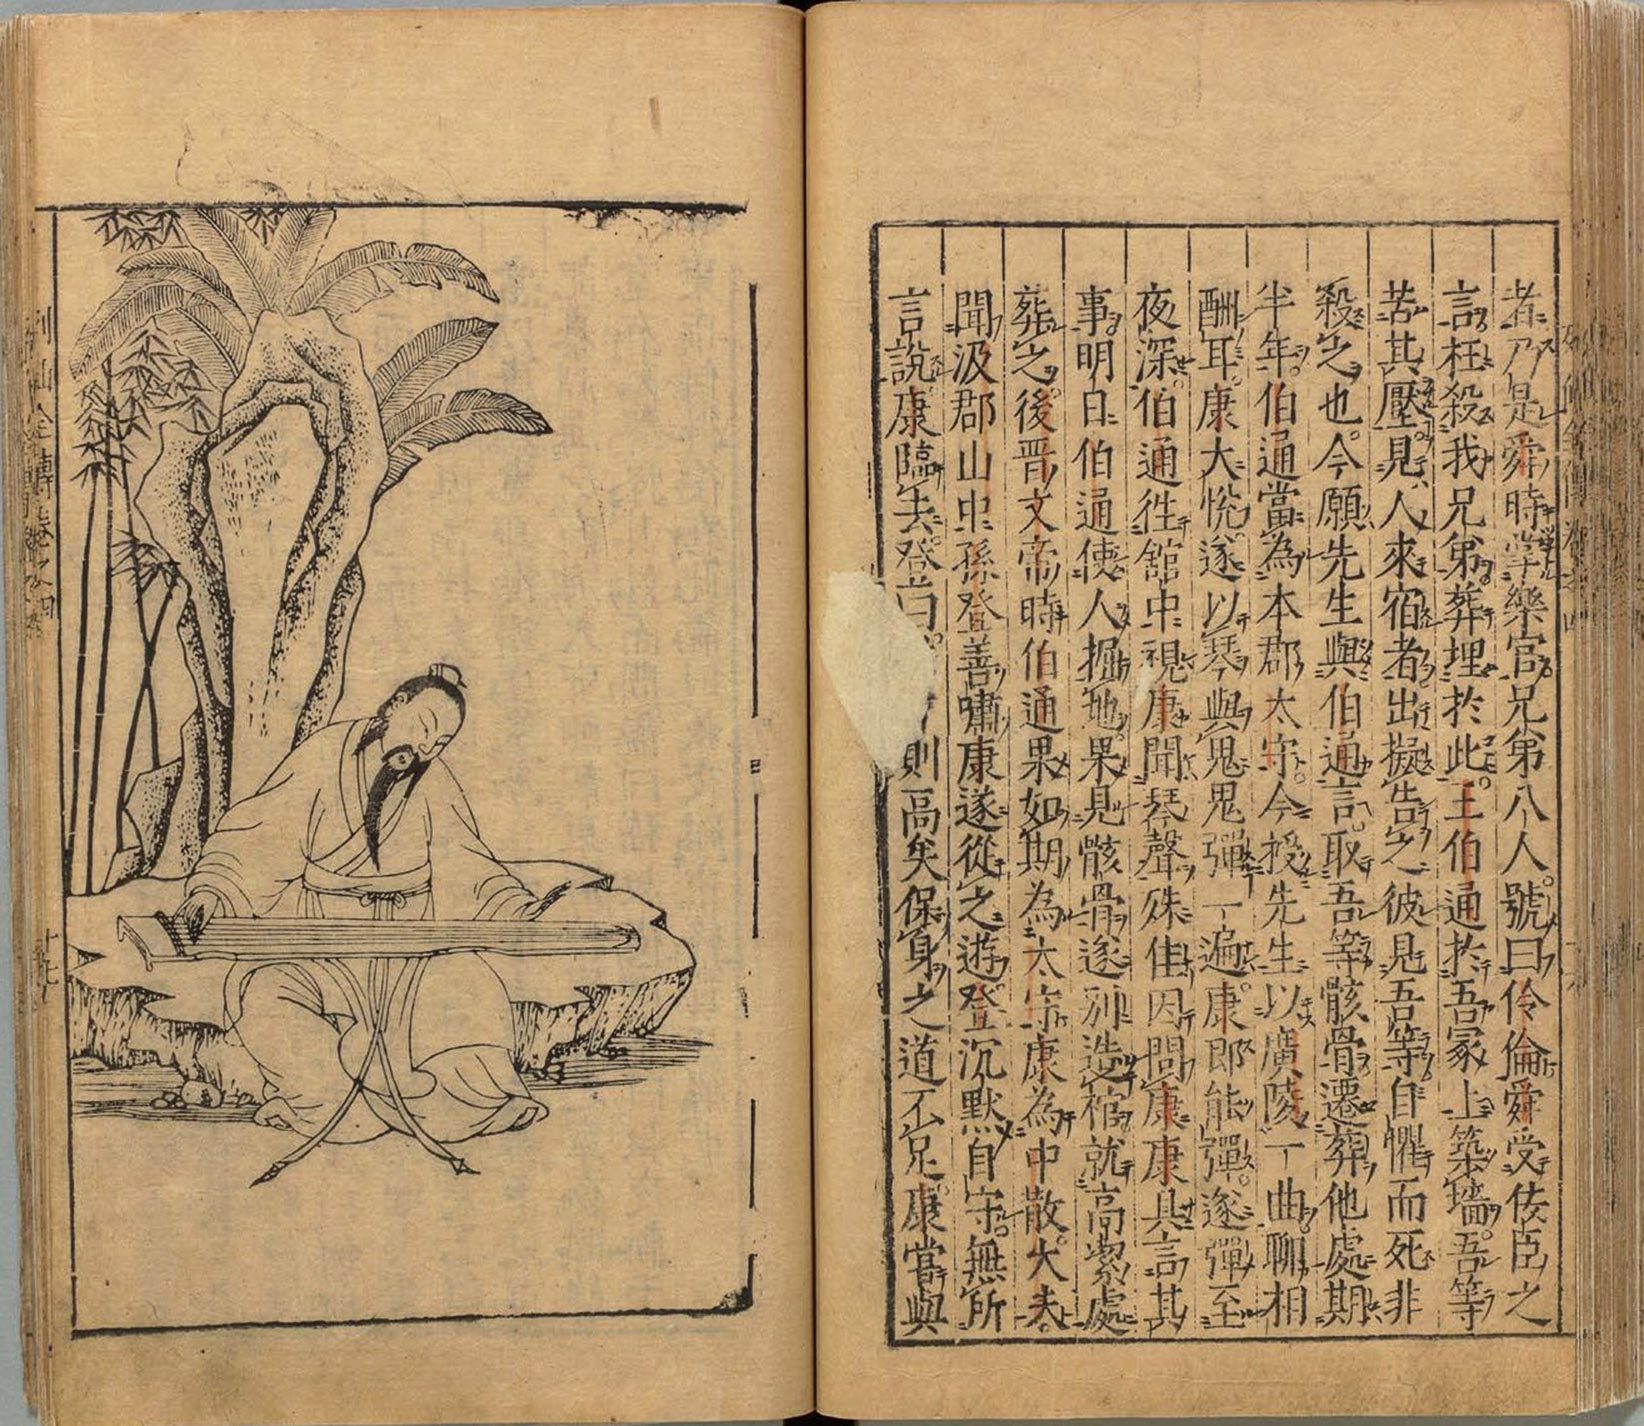 者乃是舜時掌樂官兄弟八人號曰伶倫舜受佞臣之
言枉殺我兄弟葬埋於此王伯通於吾冢上築墻吾等
苦其壓見人來宿者出擬告之彼見吾等自懼而死非
殺之也今願先生與伯通言取吾等骸骨遷葬他處期
半年伯通當為本郡太守今授先生以廣陵一曲聊相
酬耳康大悅遂以琴與鬼鬼彈一遍康即能彈遂彈至
夜深伯通往舘中視康聞琴聲殊佳因問康康具言其
事明日伯通使人掘地果見骸骨遂別造棺就高絜處
葬之後晋文帝時伯通果如期為太守康為中散大夫
聞汲郡山中孫登善嘯康遂從之遊登沉默自守無所
言說康臨去登曰則高矣保身之道不足康嘗與
列仙全傳卷之四
十七